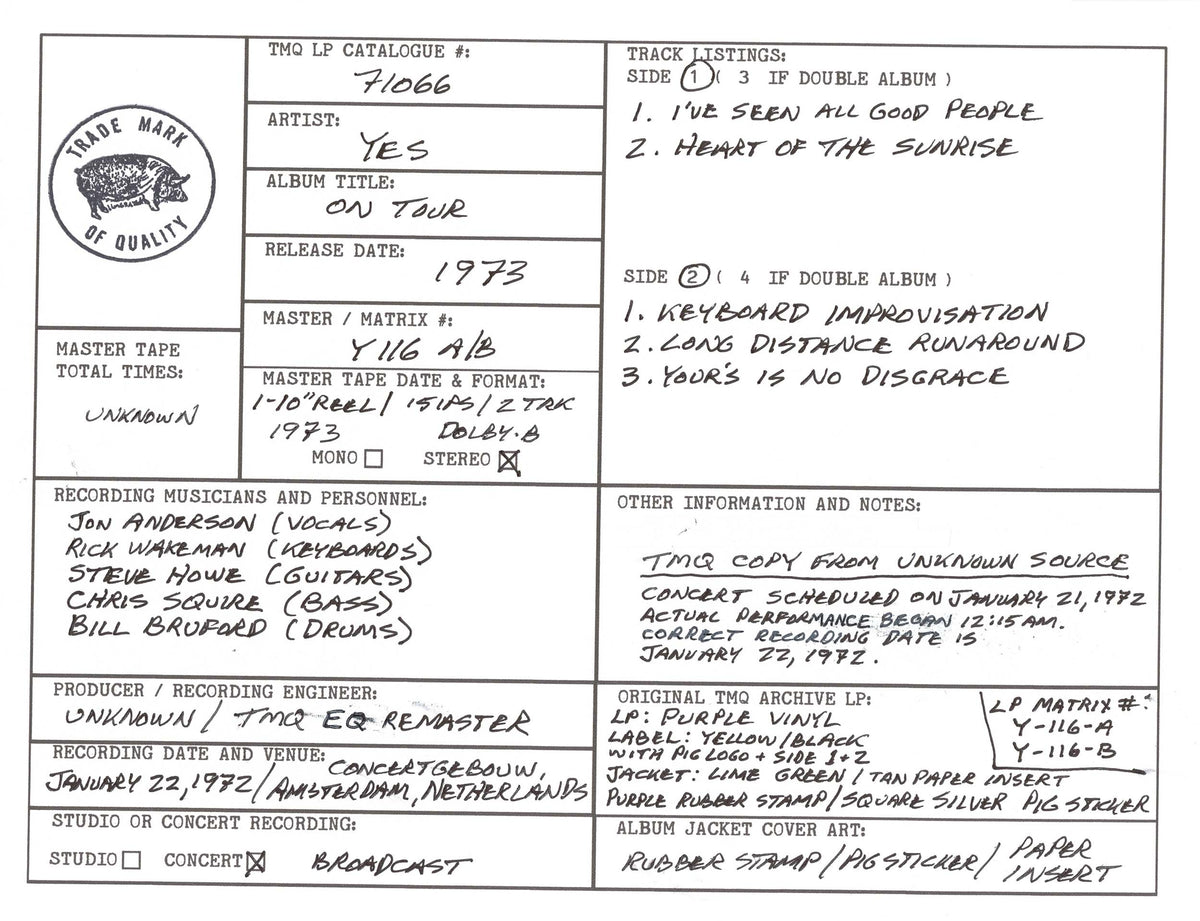 TRADE MARK
OF QUALITY
TMQ LP CATALOGUE #:
71066
ARTIST:
YES
ALBUM TITLE:
ON TOUR
RELEASE DATE:
1973
MASTER / MATRIX #:
Y 116 A/B
MASTER TAPE
TOTAL TIMES:
UNKNOWN
MASTER TAPE DATE & FORMAT:
1-10" REEL / 15 IPS / 2 TRK
1973 DOLBY-B
MONO STEREO
TRACK LISTINGS:
SIDE 1 ( 3 IF DOUBLE ALBUM )
1. I'VE SEEN ALL GOOD PEOPLE
2. HEART OF THE SUNRISE
SIDE 2 ( 4 IF DOUBLE ALBUM )
1. KEYBOARD IMPROVISATION
2. LONG DISTANCE RUNAROUND
3. YOUR'S IS NO DISGRACE
RECORDING MUSICIANS AND PERSONNEL:
JON ANDERSON (VOCALS)
RICK WAKEMAN (KEYBOARDS)
STEVE HOWE (GUITARS)
CHRIS SQUIRE (BASS)
BILL BRUFORD (DRUMS)
OTHER INFORMATION AND NOTES:
TMQ COPY FROM UNKNOWN SOURCE
CONCERT SCHEDULED ON JANUARY 21, 1972
ACTUAL PERFORMANCE BEGAN 12:15 AM.
CORRECT RECORDING DATE IS
JANUARY 22, 1972.
PRODUCER / RECORDING ENGINEER:
UNKNOWN / TMQ EQ REMASTER
RECORDING DATE AND VENUE:
JANUARY 22, 1972 / CONCERTGEBOUW,
AMSTERDAM, NETHERLANDS
STUDIO OR CONCERT RECORDING:
STUDIO CONCERT BROADCAST
ORIGINAL TMQ ARCHIVE LP:
LP: PURPLE VINYL
LABEL: YELLOW/BLACK
WITH PIG LOGO + SIDE 1+2
JACKET: LIME GREEN / TAN PAPER INSERT
PURPLE RUBBER STAMP / SQUARE SILVER PIG STICKER
LP MATRIX #:
Y-116-A
Y-116-B
ALBUM JACKET COVER ART:
RUBBER STAMP / PIG STICKER / PAPER
INSERT